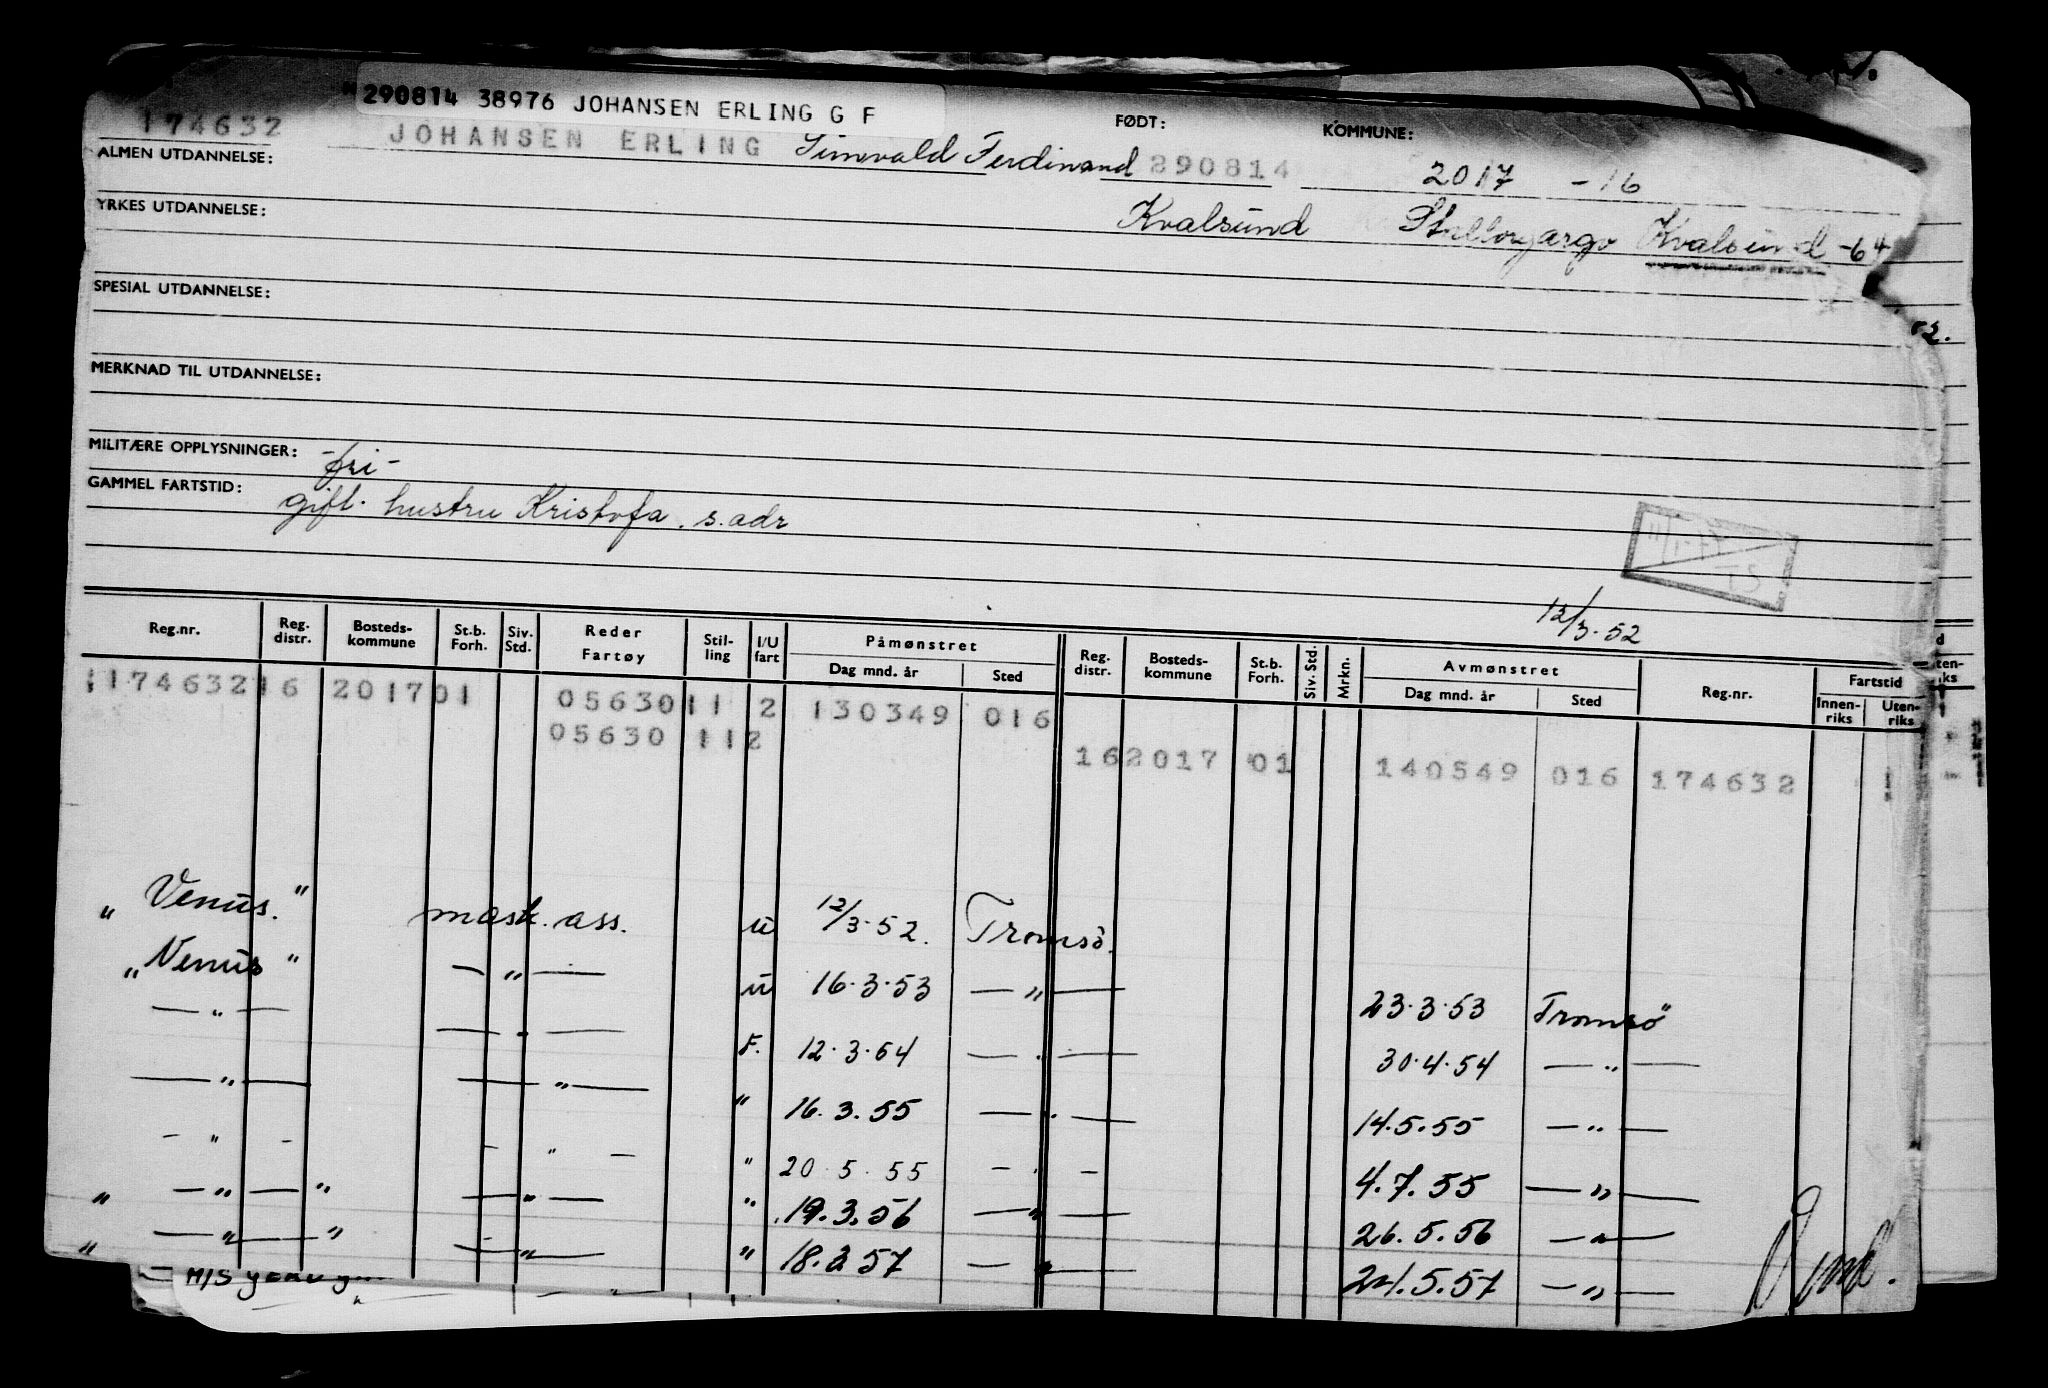 290814 38976 JOHANSEN ERLING G F
174632 JOHANSEN ERLING Ferdinand FØDT: 290814 KOMMUNE: 2017 -16
ALMEN UTDANNELSE:
YRKES UTDANNELSE: Kvalsund Kvalsund -64
SPESIAL UTDANNELSE:
02.
MERKNAD TIL UTDANNELSE:
MILITÆRE OPPLYSNINGER: -fri-
GAMMEL FARTSTID: gift. hustru Kristofa. s.adr
TS
12/3.52
Reg.nr. Reg. distr. Bosteds-kommune St.b. Forh. Siv. Std. Reder Fartøy Stil-ling I/U fart Påmønstret Dag mnd. år Sted Reg. distr. Bosteds-kommune St.b. Forh. Siv. Std. Mrkn. Avmønstret Dag mnd. år Sted Reg.nr. Fartstid Innen-riks Uten-riks
174632 16 2017 01 05630 11 2 130349 016
05630 11 2 16 2017 01 140549 016 174632
"Venus." mask. ass. u 12/3.52. Tromsö.
"Venus" — " — u 16.3.53 — " — 23.3.53 Tromsö
— " — — " — F. 12.3.54 — " — 30.4.54 — " —
— " — — " — " 16.3.55 — " — 14.5.55 — " —
— " — — " — " 20.5.55 — " — 4.7.55 — " —
" — " — " — " — " 19.3.56 — " — 26.5.56 — " —
" — " — " — " — " 18.2.57 — " — 21.5.57 — " —
M/S